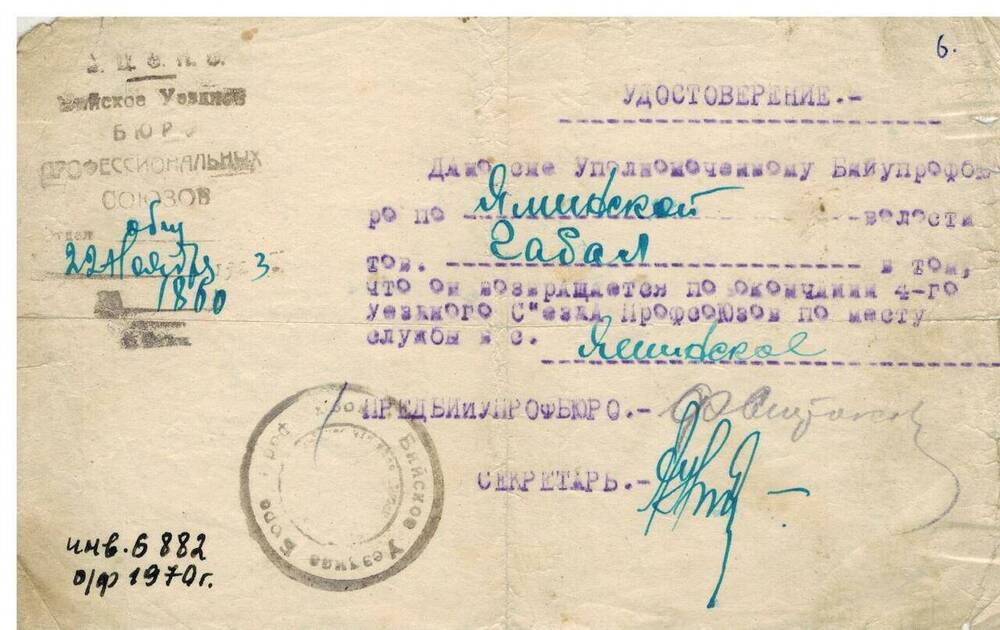 6.
В.Ц.С.П.С.
Бийское Уездное
БЮРО
ПРОФЕССИОНАЛЬНЫХ
СОЮЗОВ
Отдел общ
22 Ноября 1923
1860
УДОСТОВЕРЕНИЕ.-
Дано сие Уполномоченному Бийупрофбю-
ро по Яминской волости
тов. Сабал в том,
что он возвращается по окончании 4-го
Уездного С"езда Профсоюзов по месту
службы в с. Яминское
ПРЕДБИйУПРОФБЮРО.-
СЕКРЕТАРЬ.-
Бийское Уездное Бюро Проф
инв. 6882
о/ф 1970г.